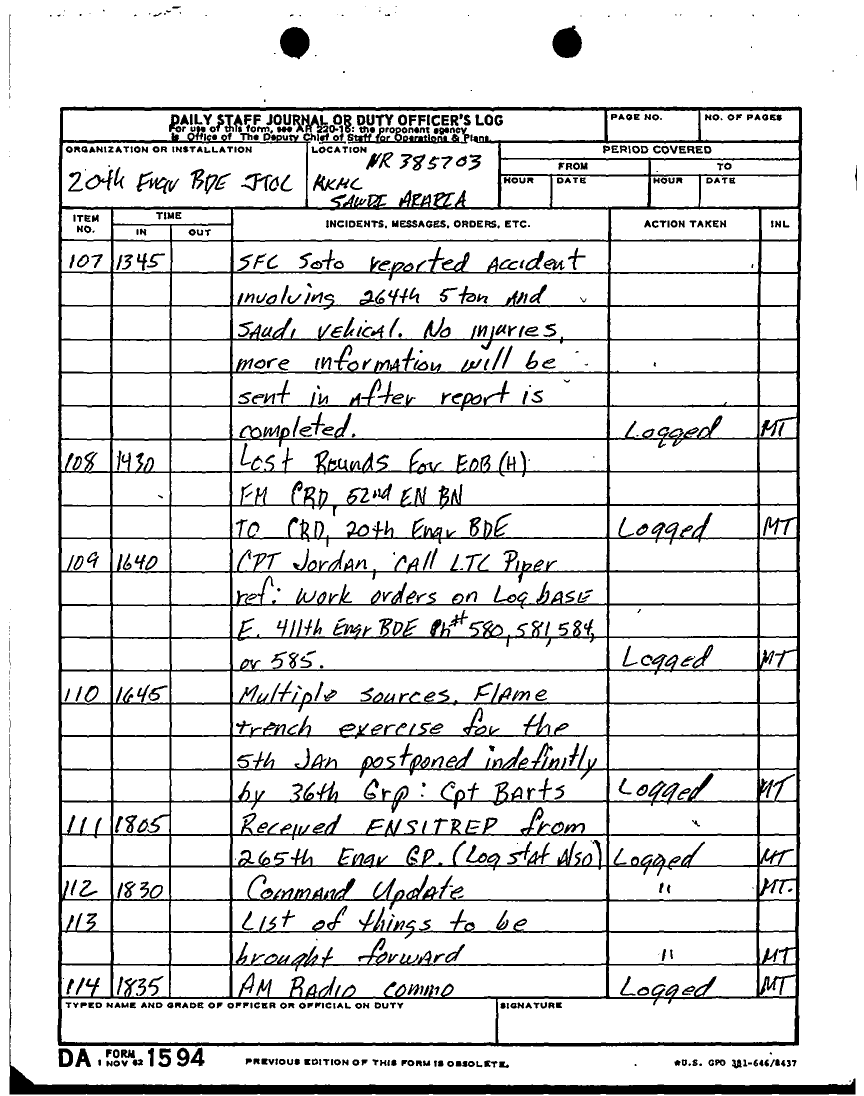 DAILY STAFF JOURNAL OR DUTY OFFICER'S LOG
For use of this form, see AR 220-15; the proponent agency
is Office of The Deputy Chief of Staff for Operations & Plans.
PAGE NO.
NO. OF PAGES
ORGANIZATION OR INSTALLATION
20th Engr BDE JTOC
LOCATION
NR 385703
KKMC
SAUDI ARABIA
PERIOD COVERED
FROM
TO
HOUR DATE HOUR DATE
ITEM NO.
TIME
IN OUT
INCIDENTS, MESSAGES, ORDERS, ETC.
ACTION TAKEN
INL
107 1345 SFC Soto reported Accident
involving 264th 5 ton And
SAudi VEhicAl. No injuries,
more informAtion will be
sent in After report is
completed. Logged MT
108 1430 Lost Rounds for EOB (H)
FM CRD, 62nd EN BN
TO CRD, 20th Engr BDE Logged MT
109 1640 CPT Jordan, CAll LTC Piper
ref: Work orders on Log bASE
E. 411th Engr BDE Ph# 580, 581, 584,
or 585. Logged MT
110 1645 Multiple sources, FlAme
trench exercise for the
5th JAn postponed indefinitly
by 36th Grp: Cpt BArts Logged MT
111 1805 Received ENSITREP from
265th Engr GP. (Log stAt Also) Logged MT
112 1830 CommAnd UpdAte " MT.
113 List of things to be
brought forwArd " MT
114 1835 AM RAdio commo Logged MT
TYPED NAME AND GRADE OF OFFICER OR OFFICIAL ON DUTY
SIGNATURE
DA FORM 1594
1 NOV 62
PREVIOUS EDITION OF THIS FORM IS OBSOLETE.
*U.S. GPO 381-646/8437